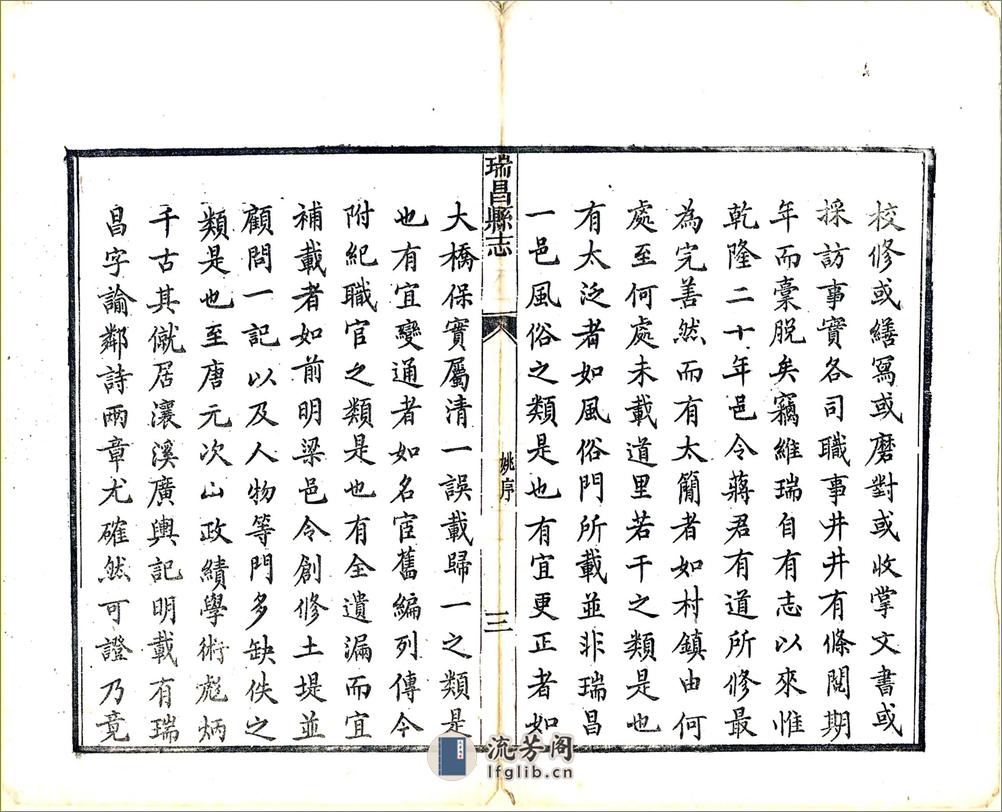 校修或繕寫或磨對或收掌文書或
採訪事實各司職事井井有條閱期
年而稾脫矣竊維瑞自有志以來惟
乾隆二十年邑令蔣君有道所修最
為完善然而有太簡者如村鎮由何
處至何處未載道里若干之類是也
有太泛者如風俗門所載並非瑞昌
一邑風俗之類是也有宜更正者如
瑞昌縣志
姚序
三
大橋保實屬清一誤載歸一之類是
也有宜變通者如名宦舊編列傳今
附紀職官之類是也有全遺漏而宜
補載者如前明梁邑令創修土堤並
顧問一記以及人物等門多缺佚之
類是也至唐元次山政績學術彪炳
千古其僦居瀼溪廣輿記明載有瑞
昌字諭鄰詩兩章尤確然可證乃竟
流芳阁
lfglib.cn